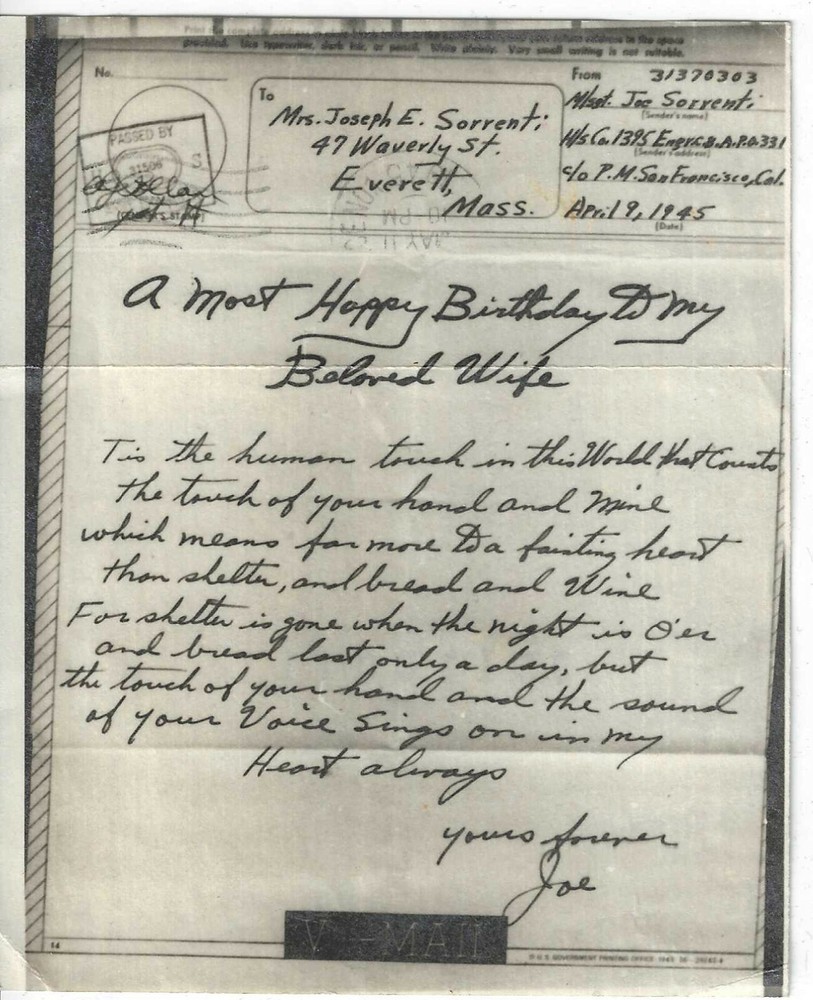 Print the complete address in plain block letters in the
return address in the space
provided. Use typewriter, dark ink, or pencil. Write plainly. Very small writing is not suitable.
No.
To
Mrs. Joseph E. Sorrenti
47 Waverly St.
Everett,
Mass.
From 31370303
M/sgt. Joe Sorrenti
(Sender's name)
H/s Co. 1395 Engr. C.B. A.P.O. 331
(Sender's address)
c/o P.M. San Francisco, Cal.
April 9, 1945
(Date)
PASSED BY
S.
(CENSOR'S STAMP)
A Most Happy Birthday to my
Beloved Wife
Tis the human touch in this World that Counts
the touch of your hand and Mine
which means far more to a fainting heart
than shelter, and bread and Wine
For shelter is gone when the night is O'er
and bread last only a day, but
the touch of your hand and the sound
of your Voice Sings on in my
Heart always
yours forever
Joe
V - MAIL
14
U.S. GOVERNMENT PRINTING OFFICE 1943